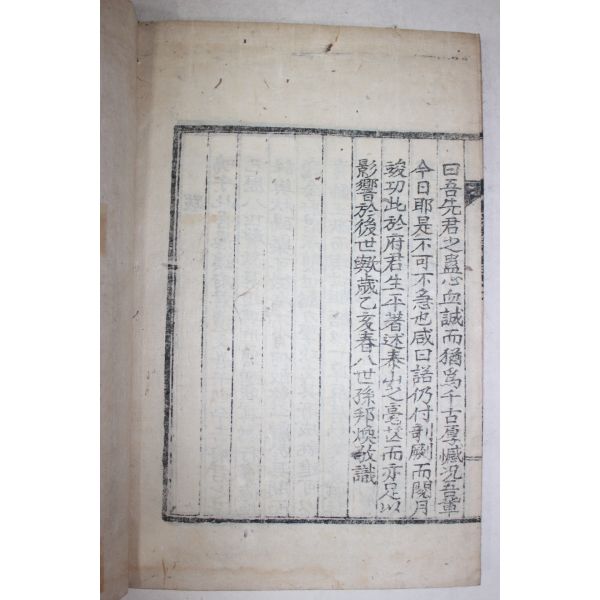 曰吾先君之蠱心血誠而猶爲千古厚慽況吾輩
今日耶是不可不急也咸曰諾仍付剞劂而閱月
竣功此於府君生平著述泰山之毫芒而亦足以
影響於後世歟歲乙亥春八世孫邦煥敬識